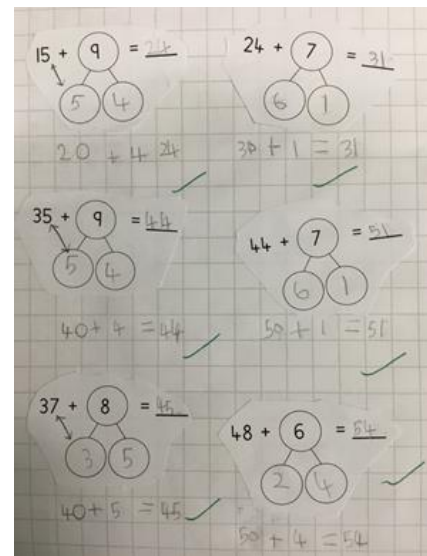 15 + 9 = 24
5 4
20 + 4 24
24 + 7 = 31
6 1
30 + 1 = 31
35 + 9 = 44
5 4
40 + 4 = 44
44 + 7 = 51
6 1
50 + 1 = 51
37 + 8 = 45
3 5
40 + 5 = 45
48 + 6 = 54
2 4
50 + 4 = 54